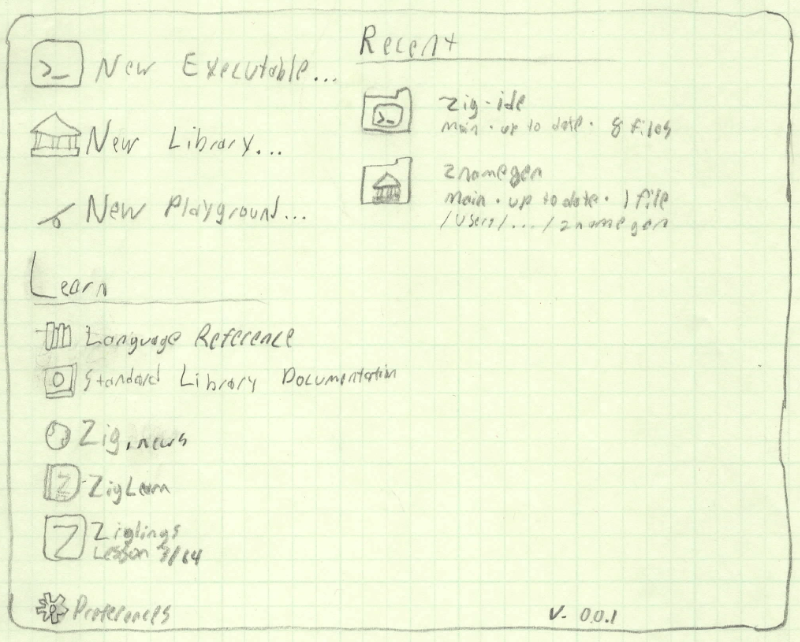 New Executable...
New Library...
New Playground...
Learn
Language Reference
Standard Library Documentation
Zig.news
Z ZigLearn
Z Ziglings
Lesson 3/64
Preferences
Recent
zig-ide
main · up to date · 8 files
znamegen
main · up to date · 1 file
/Users/.../znamegen
V- 0.0.1